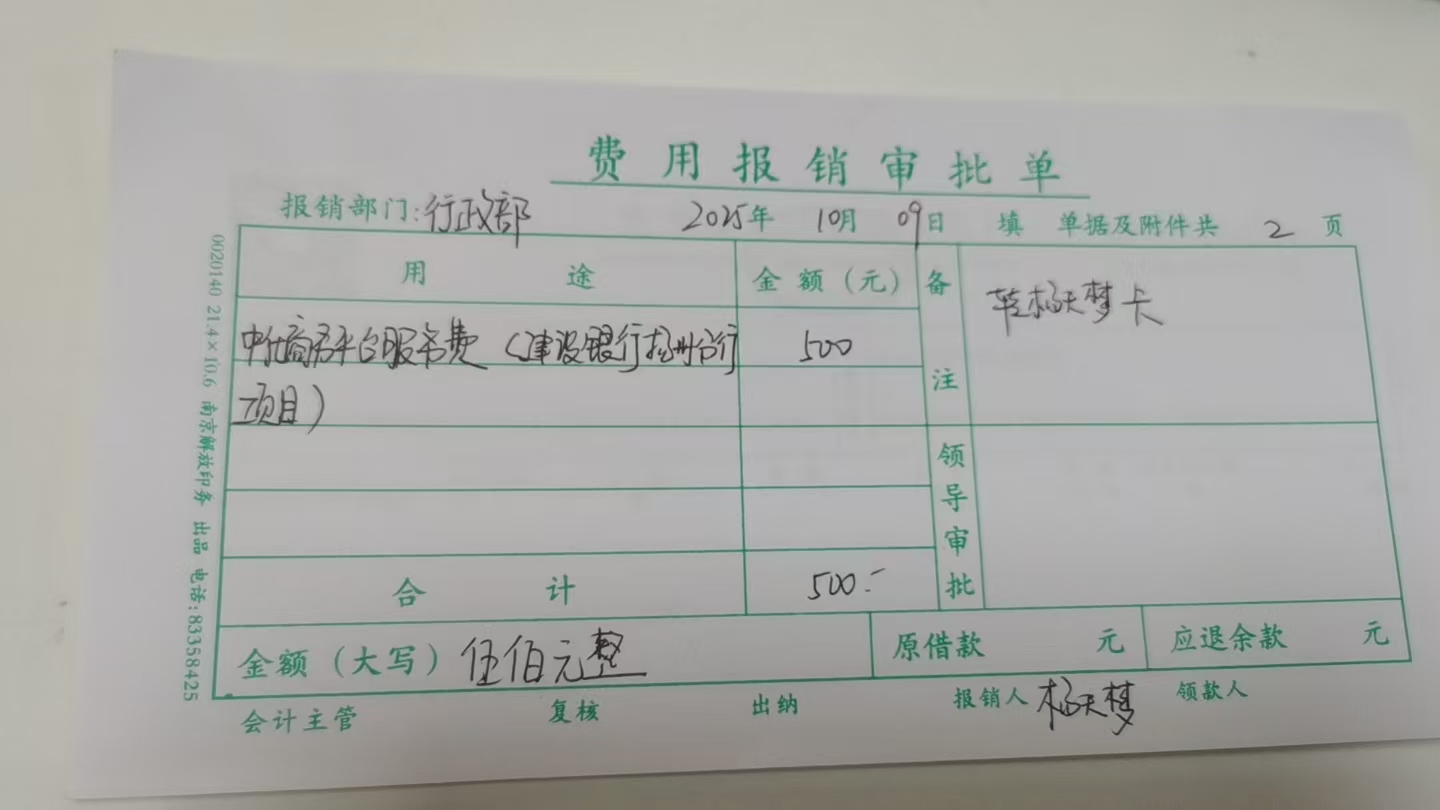 费用报销审批单
报销部门:行政部 2025年 10月 09日 填 单据及附件共 2 页
用 途 金额(元) 备注
商务平台服务费(建设银行扬州分行 500 转杨天梦卡
项目)
领导审批
合 计 500.-
金额(大写)伍佰元整 原借款 元 应退余款 元
会计主管 复核 出纳 报销人 杨天梦 领款人
0020140 21.4×10.6 南京解放印务 出品 电话:83358425